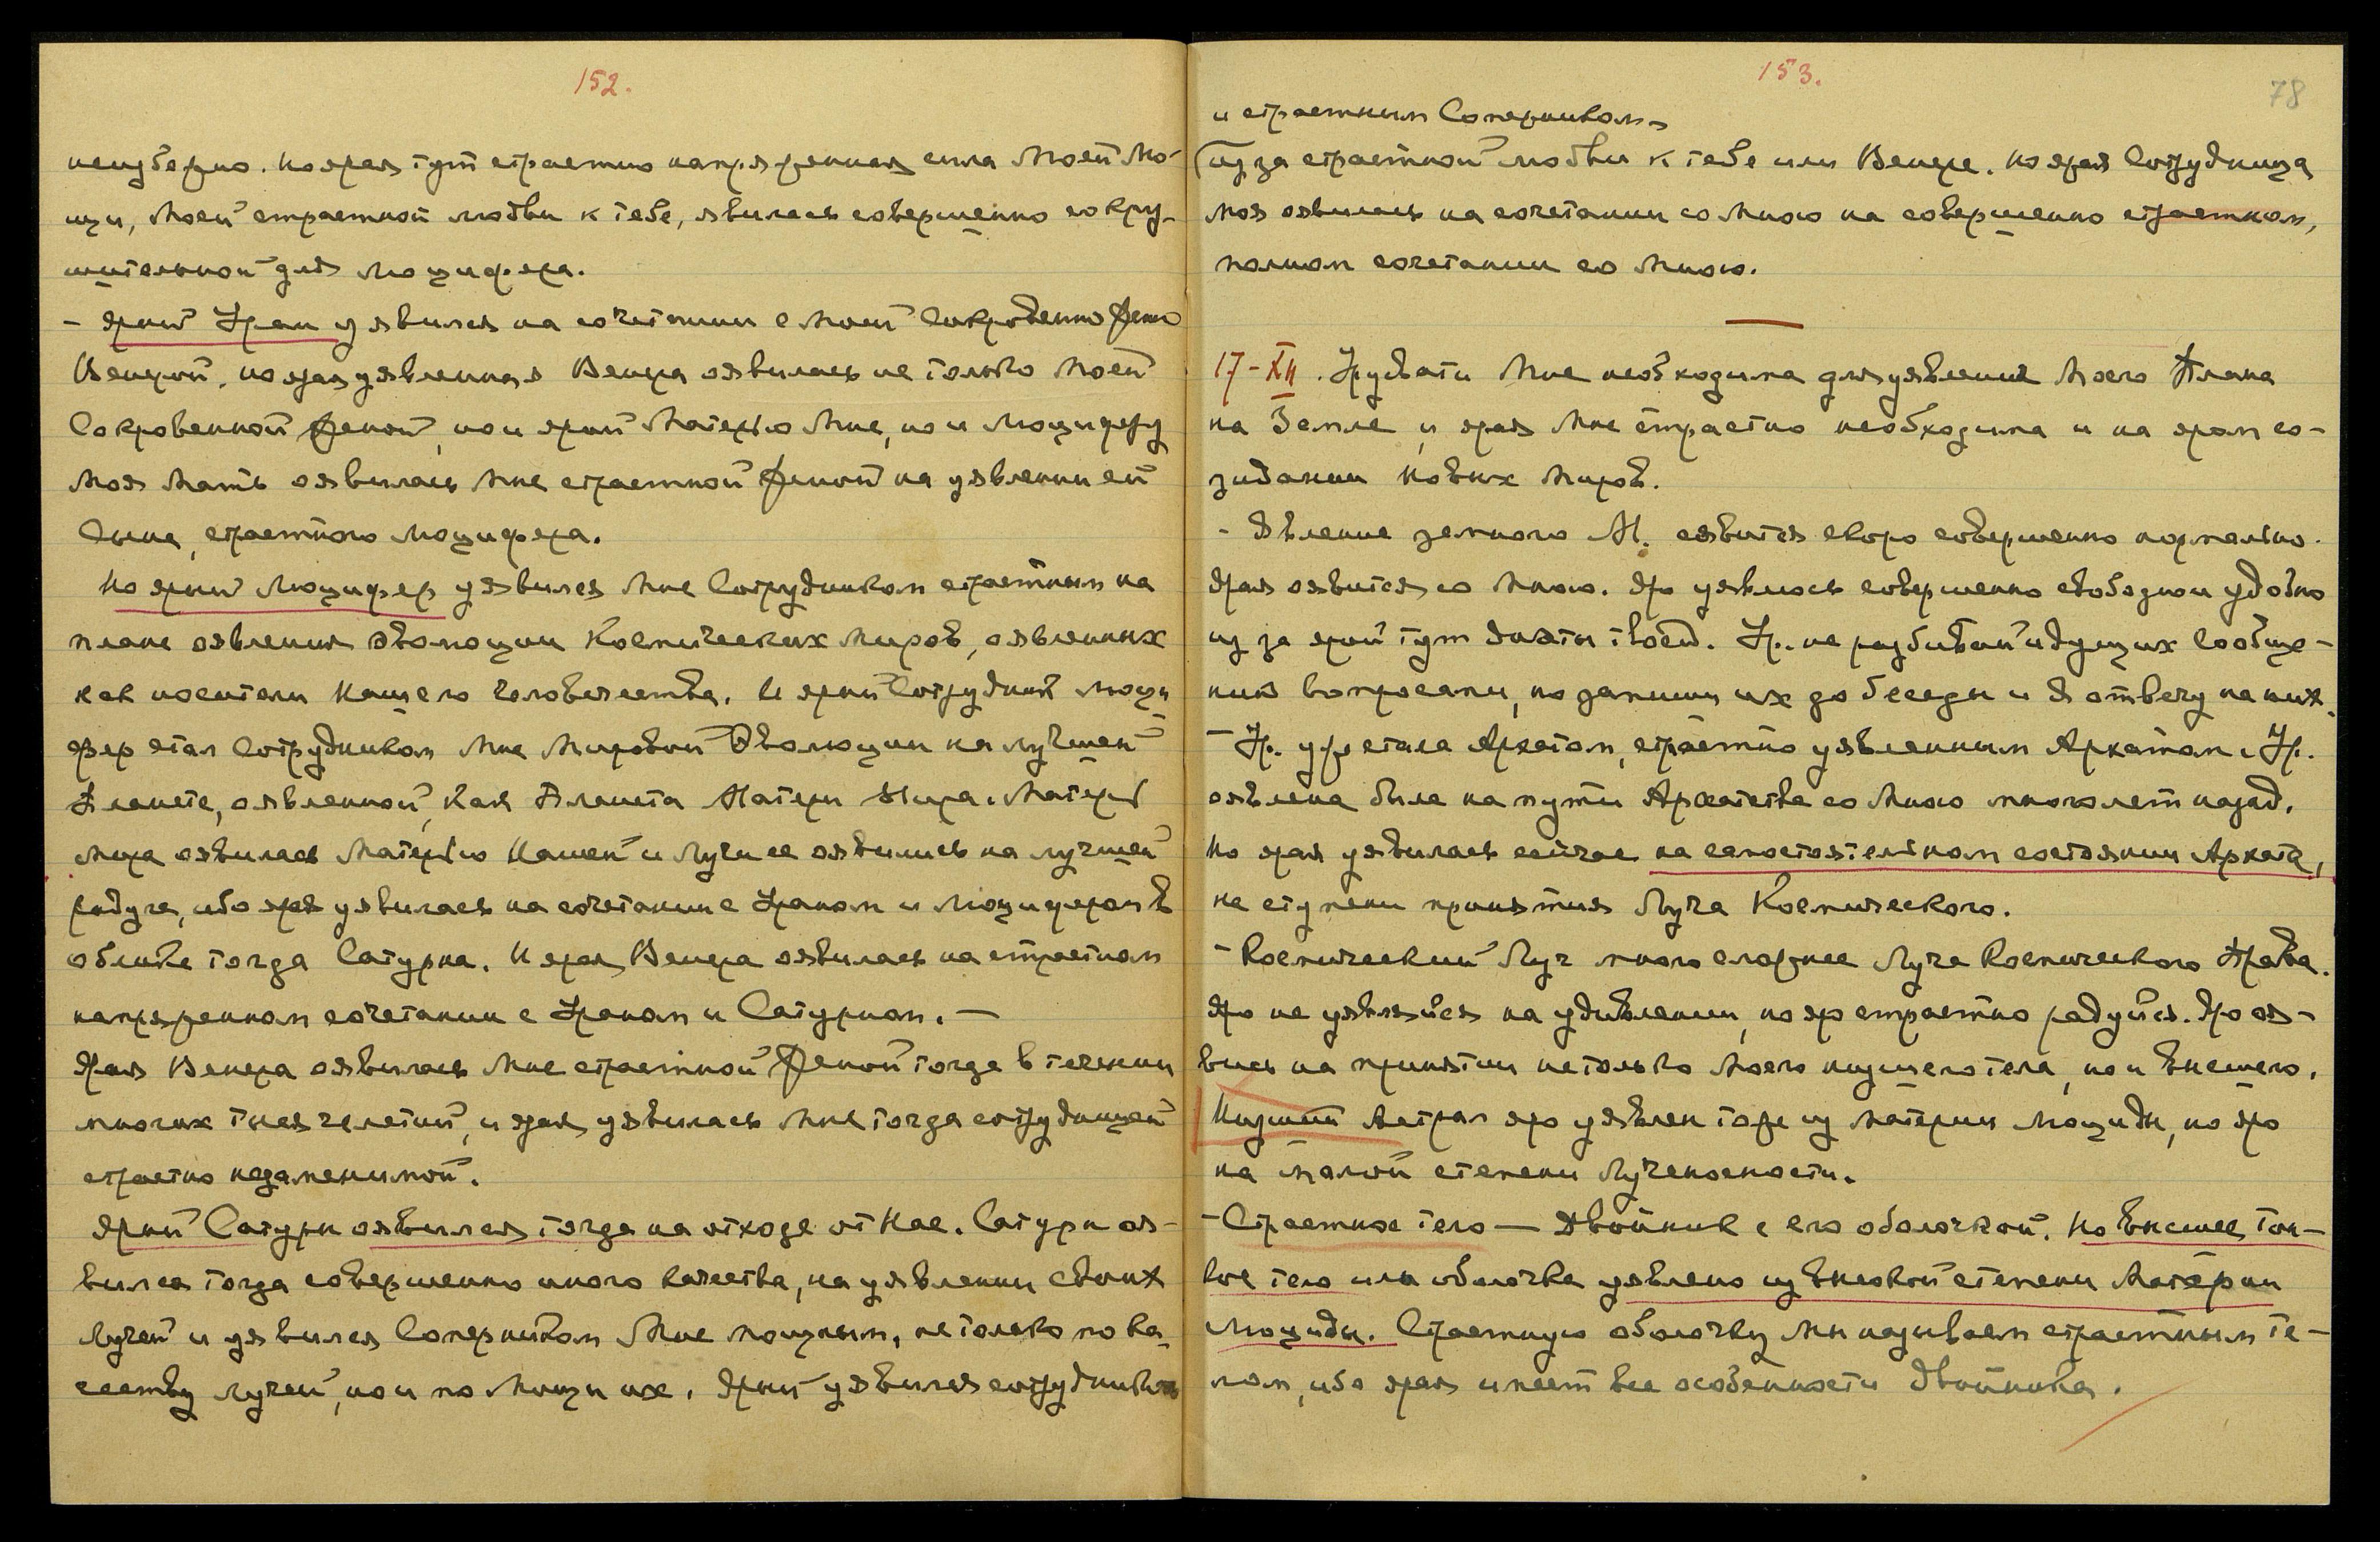 152.
неизбежно. Но ярая тут страстно напряженная сила Моей Мо-
щи, Моей страстной любви к тебе, явилась совершенно сокру-
шительной для Люцифера.
- Ярый Уран уявился на сочетании с Моей Сокровенной Женой
Венерой, но ярая уявленная Венера оявилась не только Моей
Сокровенной Женой, но и ярой Матерью Мне, но и Люциферу
Моя Мать оявилась Мне страстной Женой на уявлении ей
Сына, страстного Люцифера.
Но ярый Люцифер уявился Мне Сотрудником страстным на
плане оявления эволюции Космических Миров, оявленных
как носители Нашего Человечества. И ярый Сотрудник Люци-
фер стал Сотрудником Мне Мировой Эволюции на лучшей
Планете, оявленной, как Планета Матери Мира. Матерь
Мира оявилась Матерью Нашей и Лучи ее оявились на лучшей
радуге, ибо ярая уявилась на сочетании с Ураном и Люцифером в
облике тогда Сатурна. И ярая Венера оявилась на страстном
напряженном сочетании с Ураном и Сатурном. —
Ярая Венера оявилась Мне страстной Женой тогда в течении
многих тысячелетий, и ярая уявилась Мне тогда сотрудницей
страстно незаменимой.
Ярый Сатурн оявился тогда на отходе от Нас. Сатурн оя-
вился тогда совершенно иного качества, на уявлении своих
Лучей и уявился Соперником Мне мощным, не только по ка-
честву лучей, но и по Мощи их. Ярый уявился сотрудником
153.
78
и страстным Соперником
из за страстной любви к тебе или Венере. Но ярая Сотрудница
Моя оявилась на сочетании со Мною на совершенно страстном,
полном сочетании со Мною.
17-XII. Урусвати Мне необходима для уявления Моего Плана
на Земле и ярая Мне страстно необходима и на яром со-
зидании Новых Миров.
- Явление земного М. оявится скоро совершенно нормально.
Ярая оявится со Мною. Яро уявлюсь совершенно свободно и удобно
из за ярой тут твоей. Ур. не разбивай идущих сообще-
ний вопросами, но запиши их до беседы и Я отвечу на них.
- Ур. уже стала Архатом, страстно уявленным Архатом. Ур.
оявлена была на пути Архатства со Мною много лет назад.
Но ярая уявилась сейчас на самостоятельном состоянии Архата,
на ступени принятия Луча Космического.
- Космический Луч много сложнее Луча Космического Права.
Яро не уявляйся на удивлении, но яро страстно радуйся. Яро оя-
вись на принятии не только Моего низшего тела, но и высшего.
Низший Астрал яро уявлен тоже из материи Люциды, но яро
на малой степени Лученосности.
- Страстное тело — Двойник с его оболочкой. Но высшее тон-
кое тело или оболочка уявлено из высокой степени Материи
Люциды. Страстную оболочку Мы называем страстным те-
лом, ибо ярая имеет все особенности двойника.